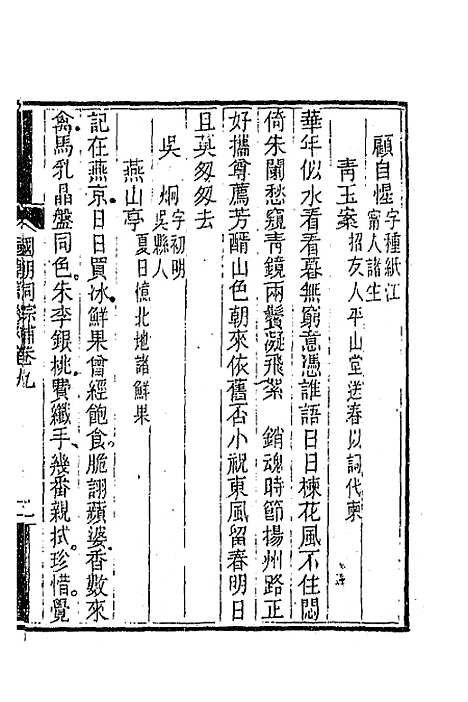 顧自惺字種紙江甯人諸生
青玉案招友人平山堂送春以詞代柬
華年似水看看暮無窮意憑誰語日日楝花風不住悶
倚朱闌愁窺靑鏡兩鬢凝飛絮　銷魂時節揚州路正
好攜尊薦芳醑山色朝來依舊否小祝東風留春明日
且莫匆匆去
吳　烱字初明吳縣人
燕山亭夏日憶北地諸鮮果
記在燕京日日買冰鮮果曾經飽食脆詡蘋婆香數來
禽馬乳晶盤同色朱李銀桃費纖手幾番親拭珍惜覺
國朝詞綜補卷九